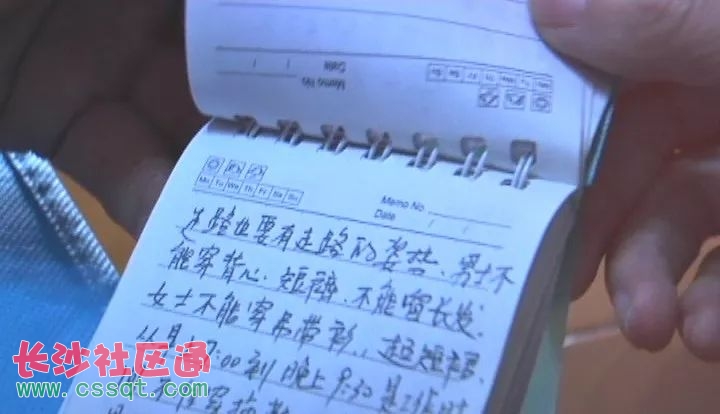 Memo No.
Date / /
Mo Tu We Th Fr Sa Su
Mo Tu We Th Fr Sa Su
Memo No.
Date / /
走路也要有走路的姿势、男士不
能穿背心、短裤、不能留长发.
女士不能穿吊带衫、超短裙.
7:00到晚上9:30是工作时
长沙社区通
www.cssqt.com